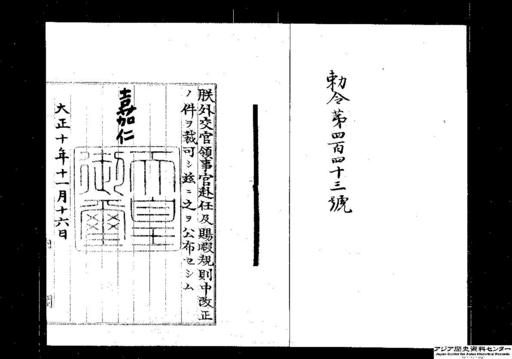 勅令第四百四十三號
朕外交官領事官赴任及賜暇規則中改正
ノ件ヲ裁可シ玆ニ之ヲ公布セシム
嘉仁
天皇御璽
大正十年十一月十六日
アジア歴史資料センター
Japan Center for Asian Historical Records